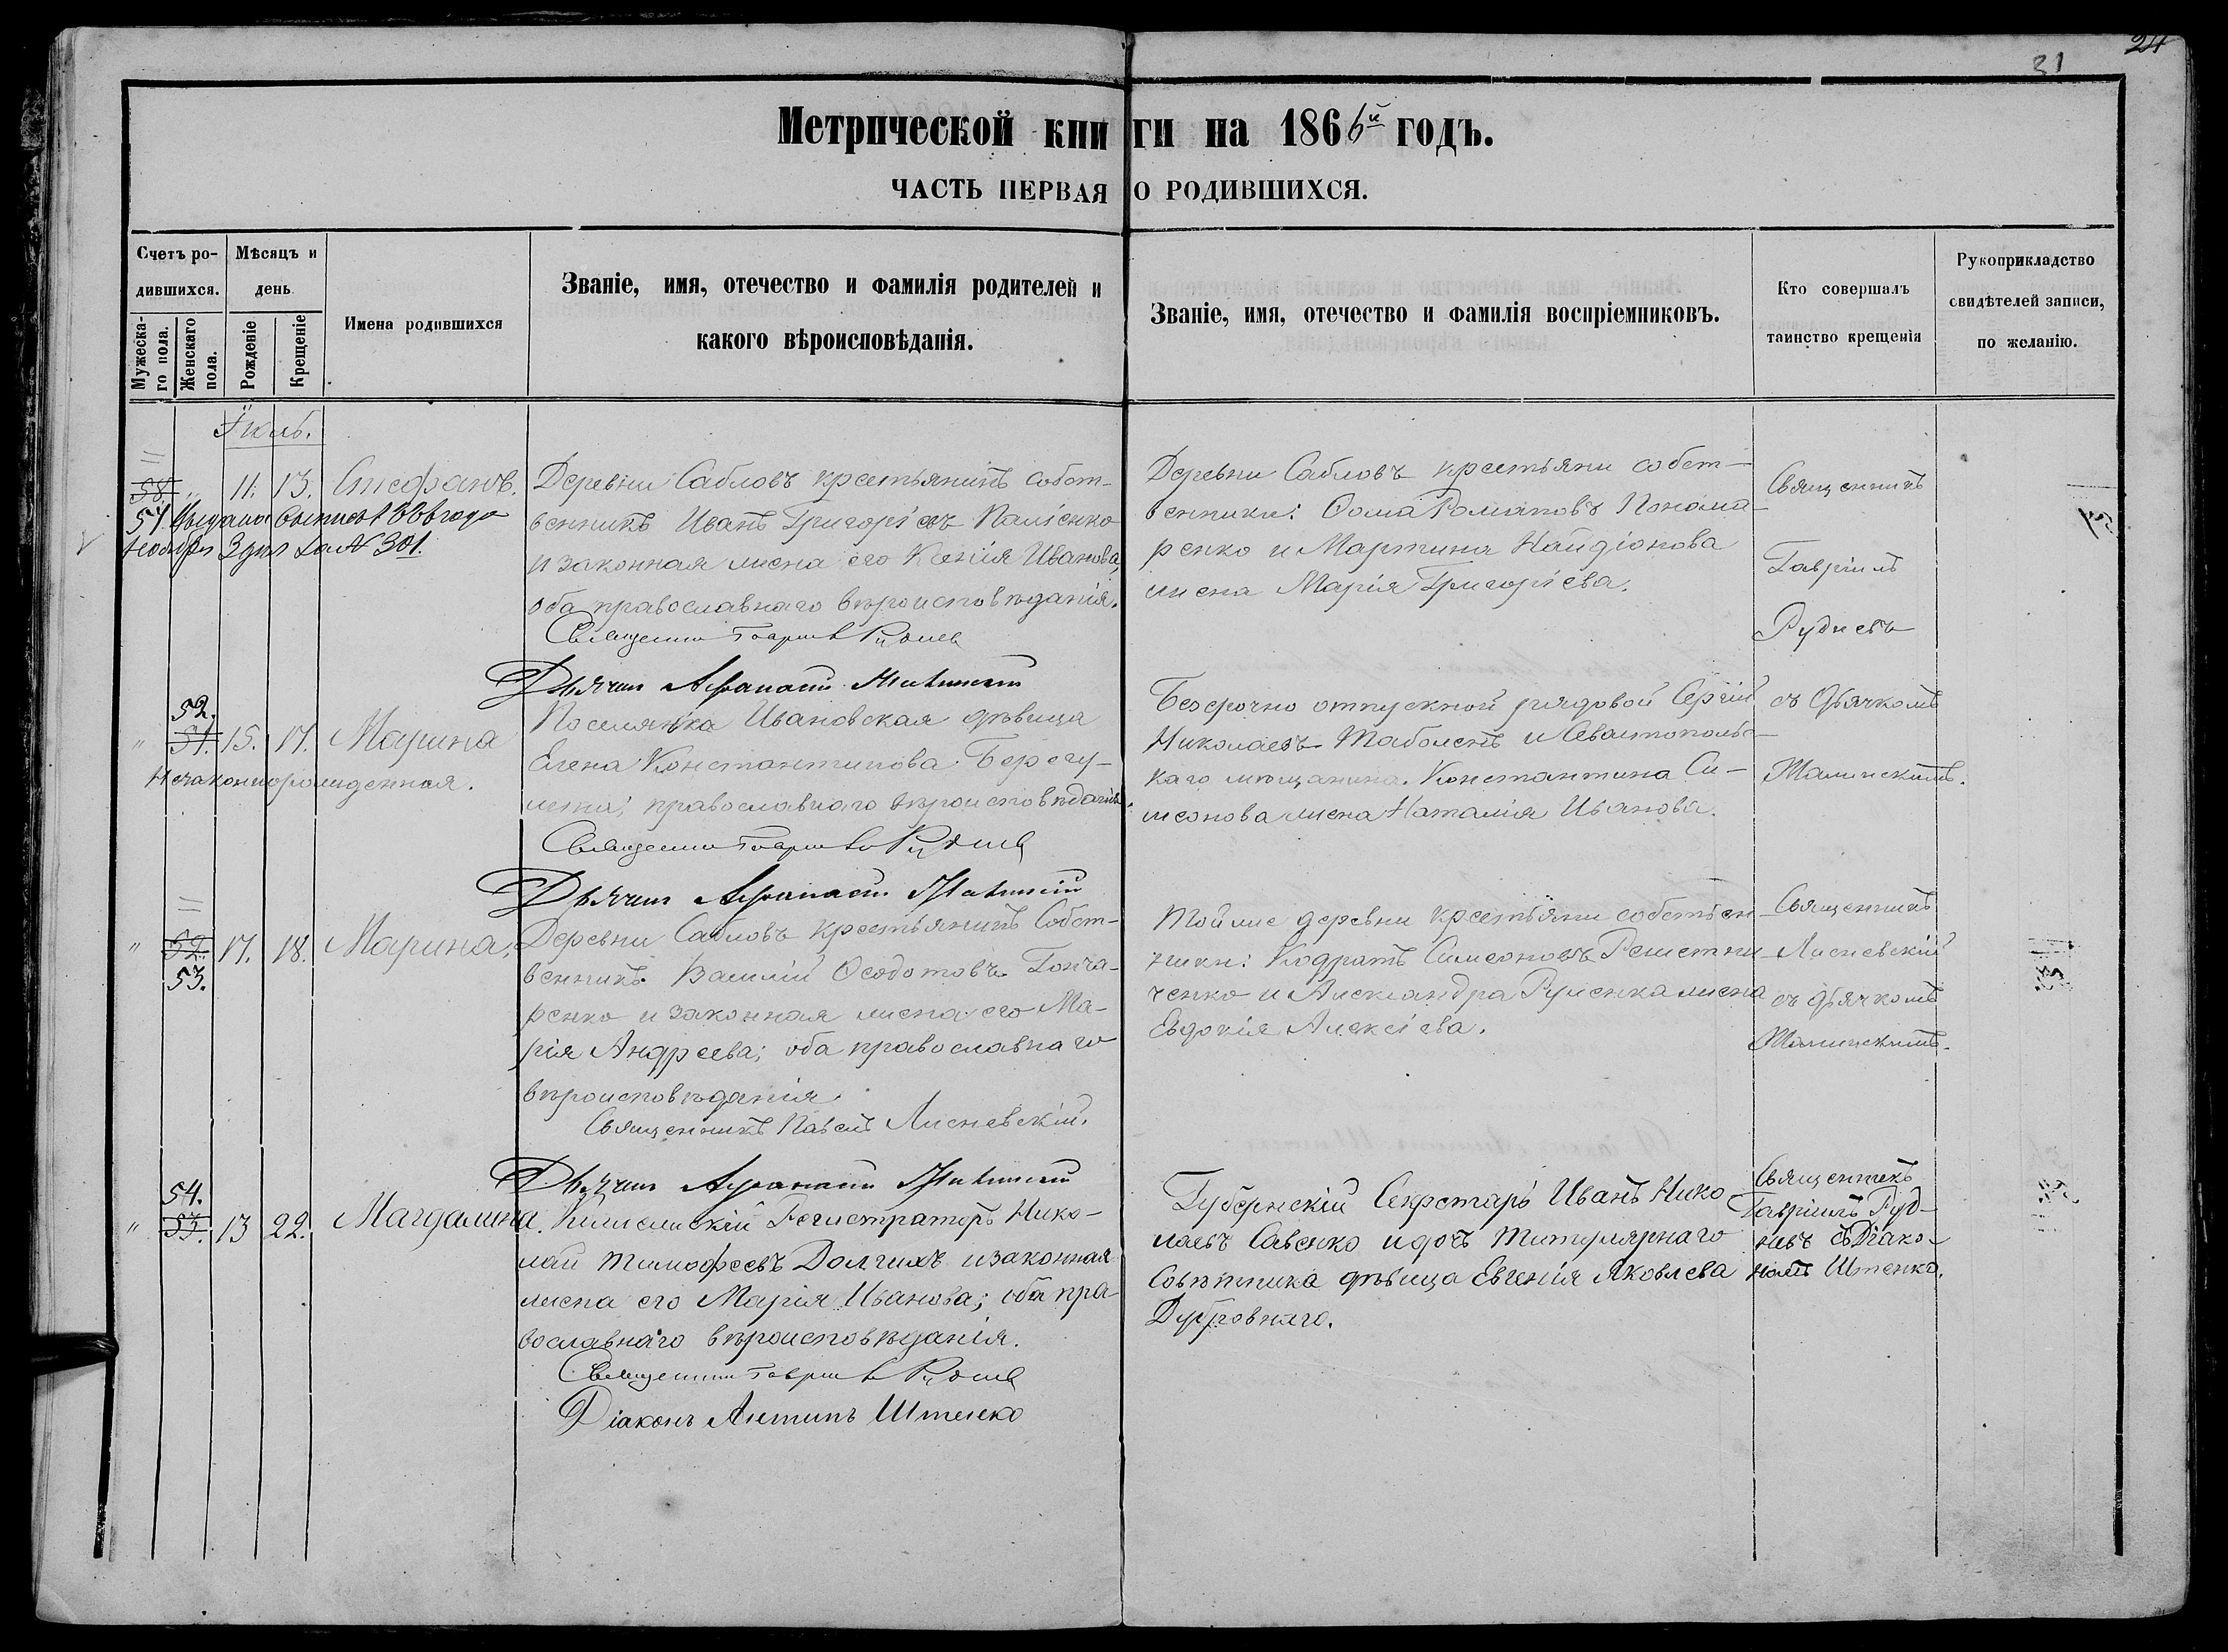 24
31
Метрической книги на 1866й годъ.
ЧАСТЬ ПЕРВАЯ О РОДИВШИХСЯ.
Счетъ родившихся.
Мужескаго пола.
Женскаго пола.
Мѣсяцъ и день
Рожденіе
Крещеніе
Имена родившихся
Званіе, имя, отечество и фамилія родителей и
какого вѣроисповѣданія.
Званіе, имя, отечество и фамилія воспріемниковъ.
Кто совершалъ
таинство крещенія
Рукоприкладство
свидѣтелей записи,
по желанію.
Іюль.
58. " 11. 13. Стефанъ.
Деревни Сабловъ крестьянинъ собст-
венникъ Иванъ Григорьевъ
и законная жена его Ксенія Иванова,
оба православнаго вѣроисповѣданія.
Священникъ Гавріилъ Рудневъ
Дьячекъ Афанасій
Деревни Сабловъ крестьяни собст-
венники: Ѳома Романовъ Понома-
ренко и Мартина Найдіонова
жена Марія Григорьева.
Священникъ
Гавріилъ
Рудневъ
57. Выдана выпись 1866 года
Ноября 3 дня за № 301.
52.
" 51. 15. 17. Марина
Незаконнорожденная.
Поселянка Ивановская дѣвица
Елена Константинова
православнаго вѣроисповѣданія.
Священникъ Гавріилъ Рудневъ
Дьячекъ Афанасій
Безсрочно отпускной рядовой Сергій
Николаевъ и Севастополь-
каго мѣщанина Константина Си-
меонова жена Наталія Иванова.
съ Дьячкомъ
" 52. 17. 18. Марина.
53.
Деревни Сабловъ крестьянинъ Собст-
венникъ Василій Ѳеодотовъ Гонча-
ренко и законная жена его Ма-
рія Андреева; оба православнаго
вѣроисповѣданія.
Священникъ Павелъ Лисневскій.
Дьячекъ Афанасій
Тойже деревни крестьяни собствен-
ники: Кодратъ Симеоновъ Решетни-
ченко и Александра Руленка жена
Евдокія Алексіева.
Священникъ
Лисневскій
съ дьячкомъ
54.
" 53. 13 22. Магдалина.
Регистраторъ Нико-
лай Тимофеевъ Долгихъ и законная
жена его Марія Иванова; оба пра-
вославнаго вѣроисповѣданія.
Священникъ Гавріилъ Рудневъ
Діаконъ Антипъ Штенко
Губернскій Секретарь Иванъ Нико
лаевъ Савенко и дочь Титулярнаго
Совѣтника дѣвица Евгенія Яковлева
Дубровнаго.
Священникъ
Гавріилъ Руд-
невъ съ Діако-
номъ Штенко.